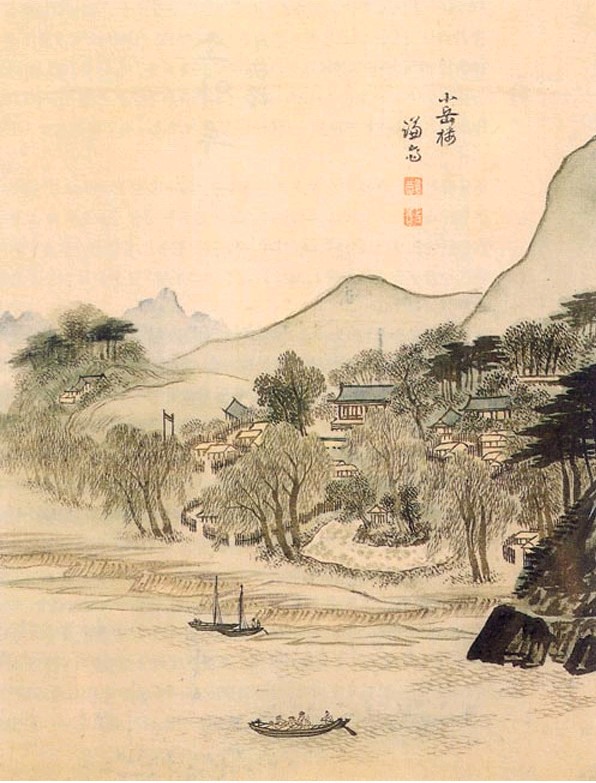 小岳樓
謙齋